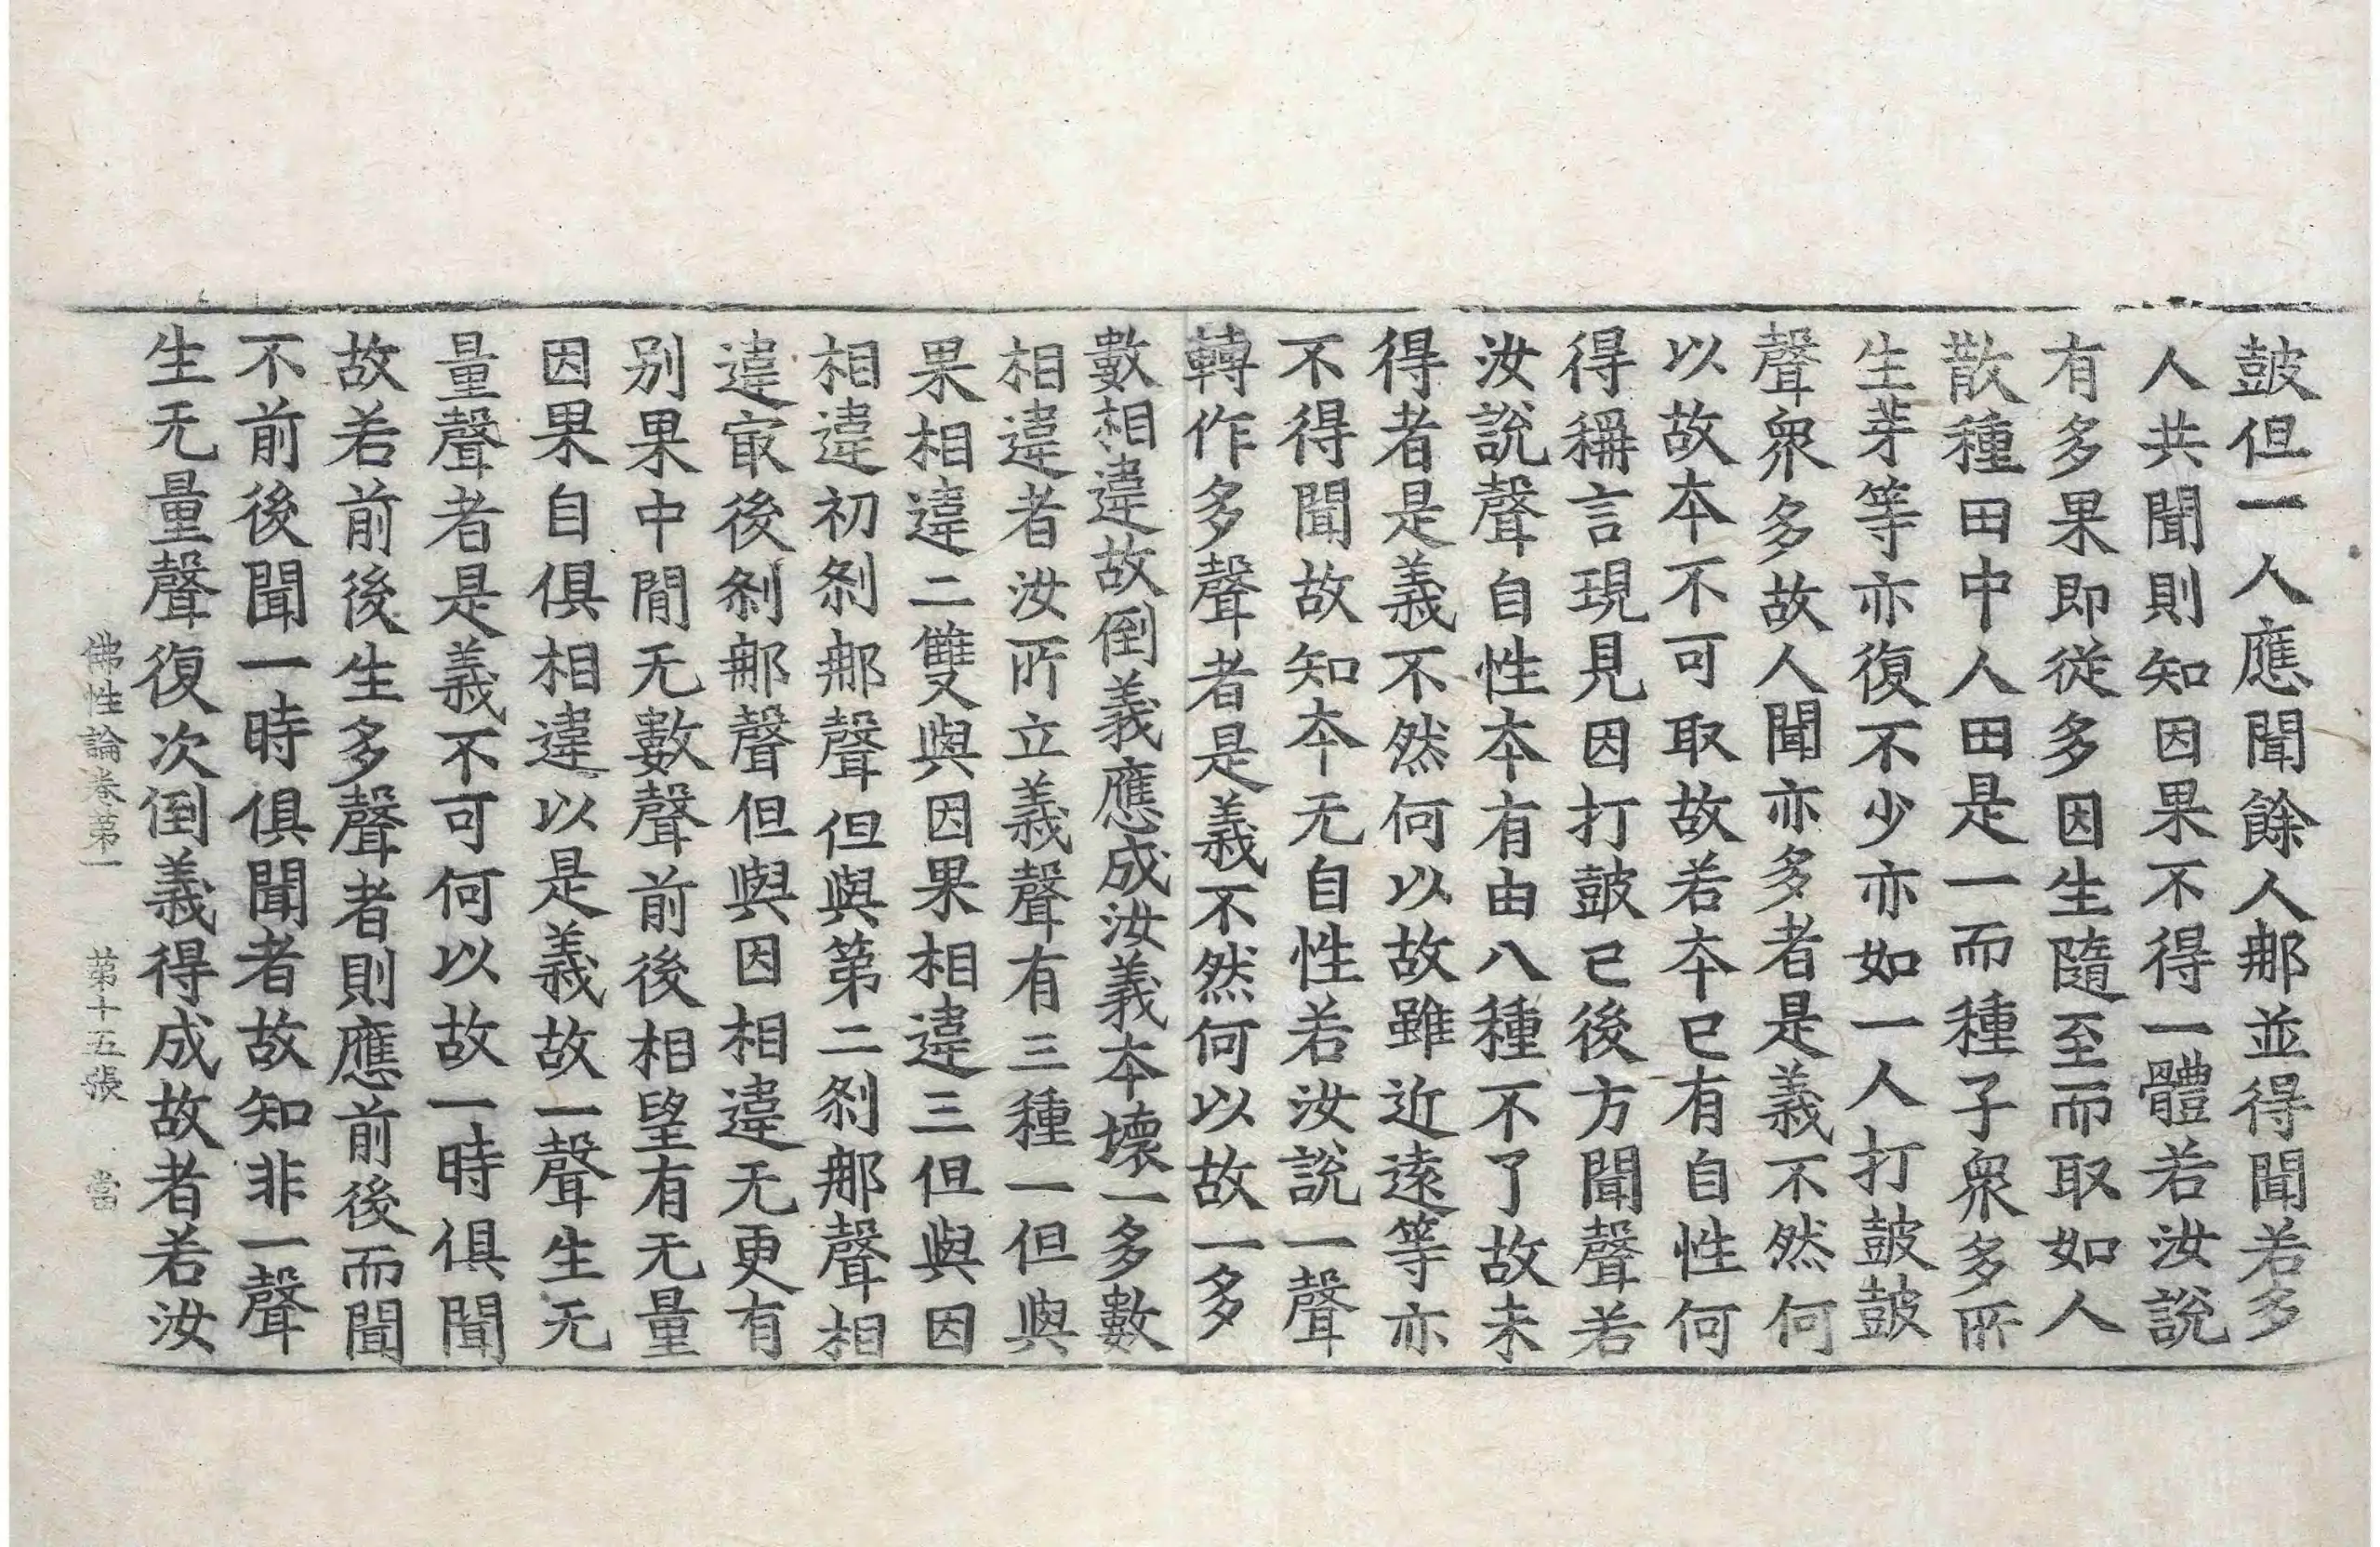 皷但一人應聞餘人那並得聞若多
人共聞則知因果不得一體若汝說
有多果即從多因生隨至而取如人
散種田中人田是一而種子衆多所
生芽等亦復不少亦如一人打皷皷
聲衆多故人聞亦多者是義不然何
以故本不可取故若本已有自性何
得稱言現見因打皷已後方聞聲若
汝說聲自性本有由八種不了故未
得者是義不然何以故雖近遠等亦
不得聞故知本无自性若汝說一聲
轉作多聲者是義不然何以故一多
數相違故倒義應成汝義本壞一多數
相違者汝所立義聲有三種一但與
果相違二雙與因果相違三但與因
相違初剎那聲但與第二剎那聲相
違㝡後剎那聲但與因相違无更有
別果中間无數聲前後相望有无量
因果自俱相違以是義故一聲生无
量聲者是義不可何以故一時俱聞
故若前後生多聲者則應前後而聞
不前後聞一時俱聞者故知非一聲
生无量聲復次倒義得成故者若汝
佛性論卷第一 第十五張 當